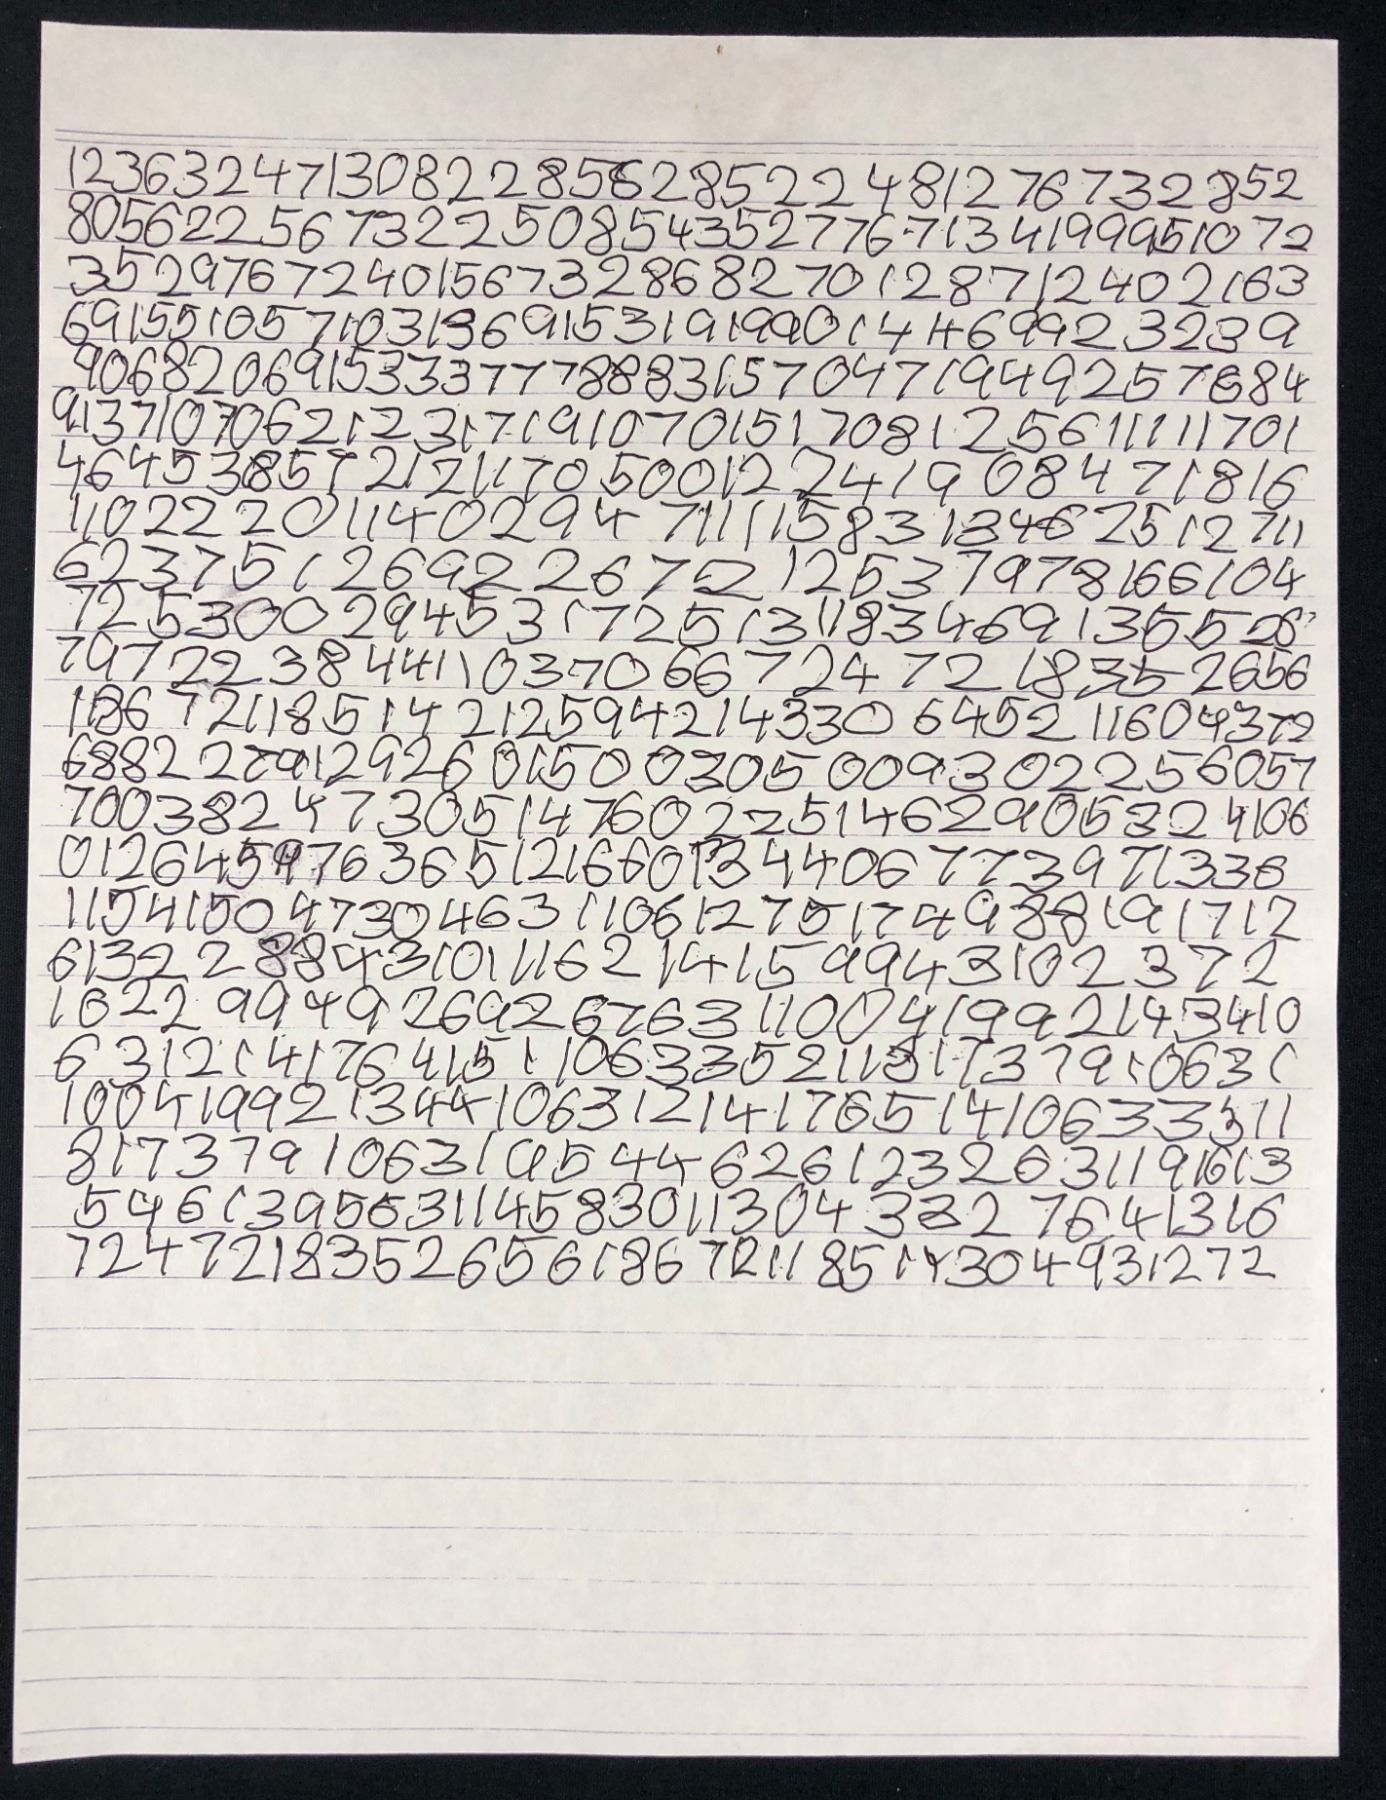 123632471308228568285224812767328 52
8056225673225085435277671341999510 72
352976724015673286827012871240 2163
69155105710313691531919901446992 3239
9068206915333777888315704719492 57684
913710706212317191070151708125611111701
46453857212117050012224190847 1816
1102220114029471111583134625 12711
623751269226752125379781661 04
725300294531725131183469135 5528
79722384411037066724721835 2656
1186721185142125942143306452 11604372
68822791292601500305009302256057
7003824730514760225146290532 4106
0126459763651216601344067739 71336
1154150473046311061275174988191712
61322884310111621415994310 2372
1622994926926763110041992143410
6312141764151106335211317379106 31
1004199213441063121417651410633311
81737910631954462612326311916 13
54613956311458301130433276 41316
724721835265618672118514304931272